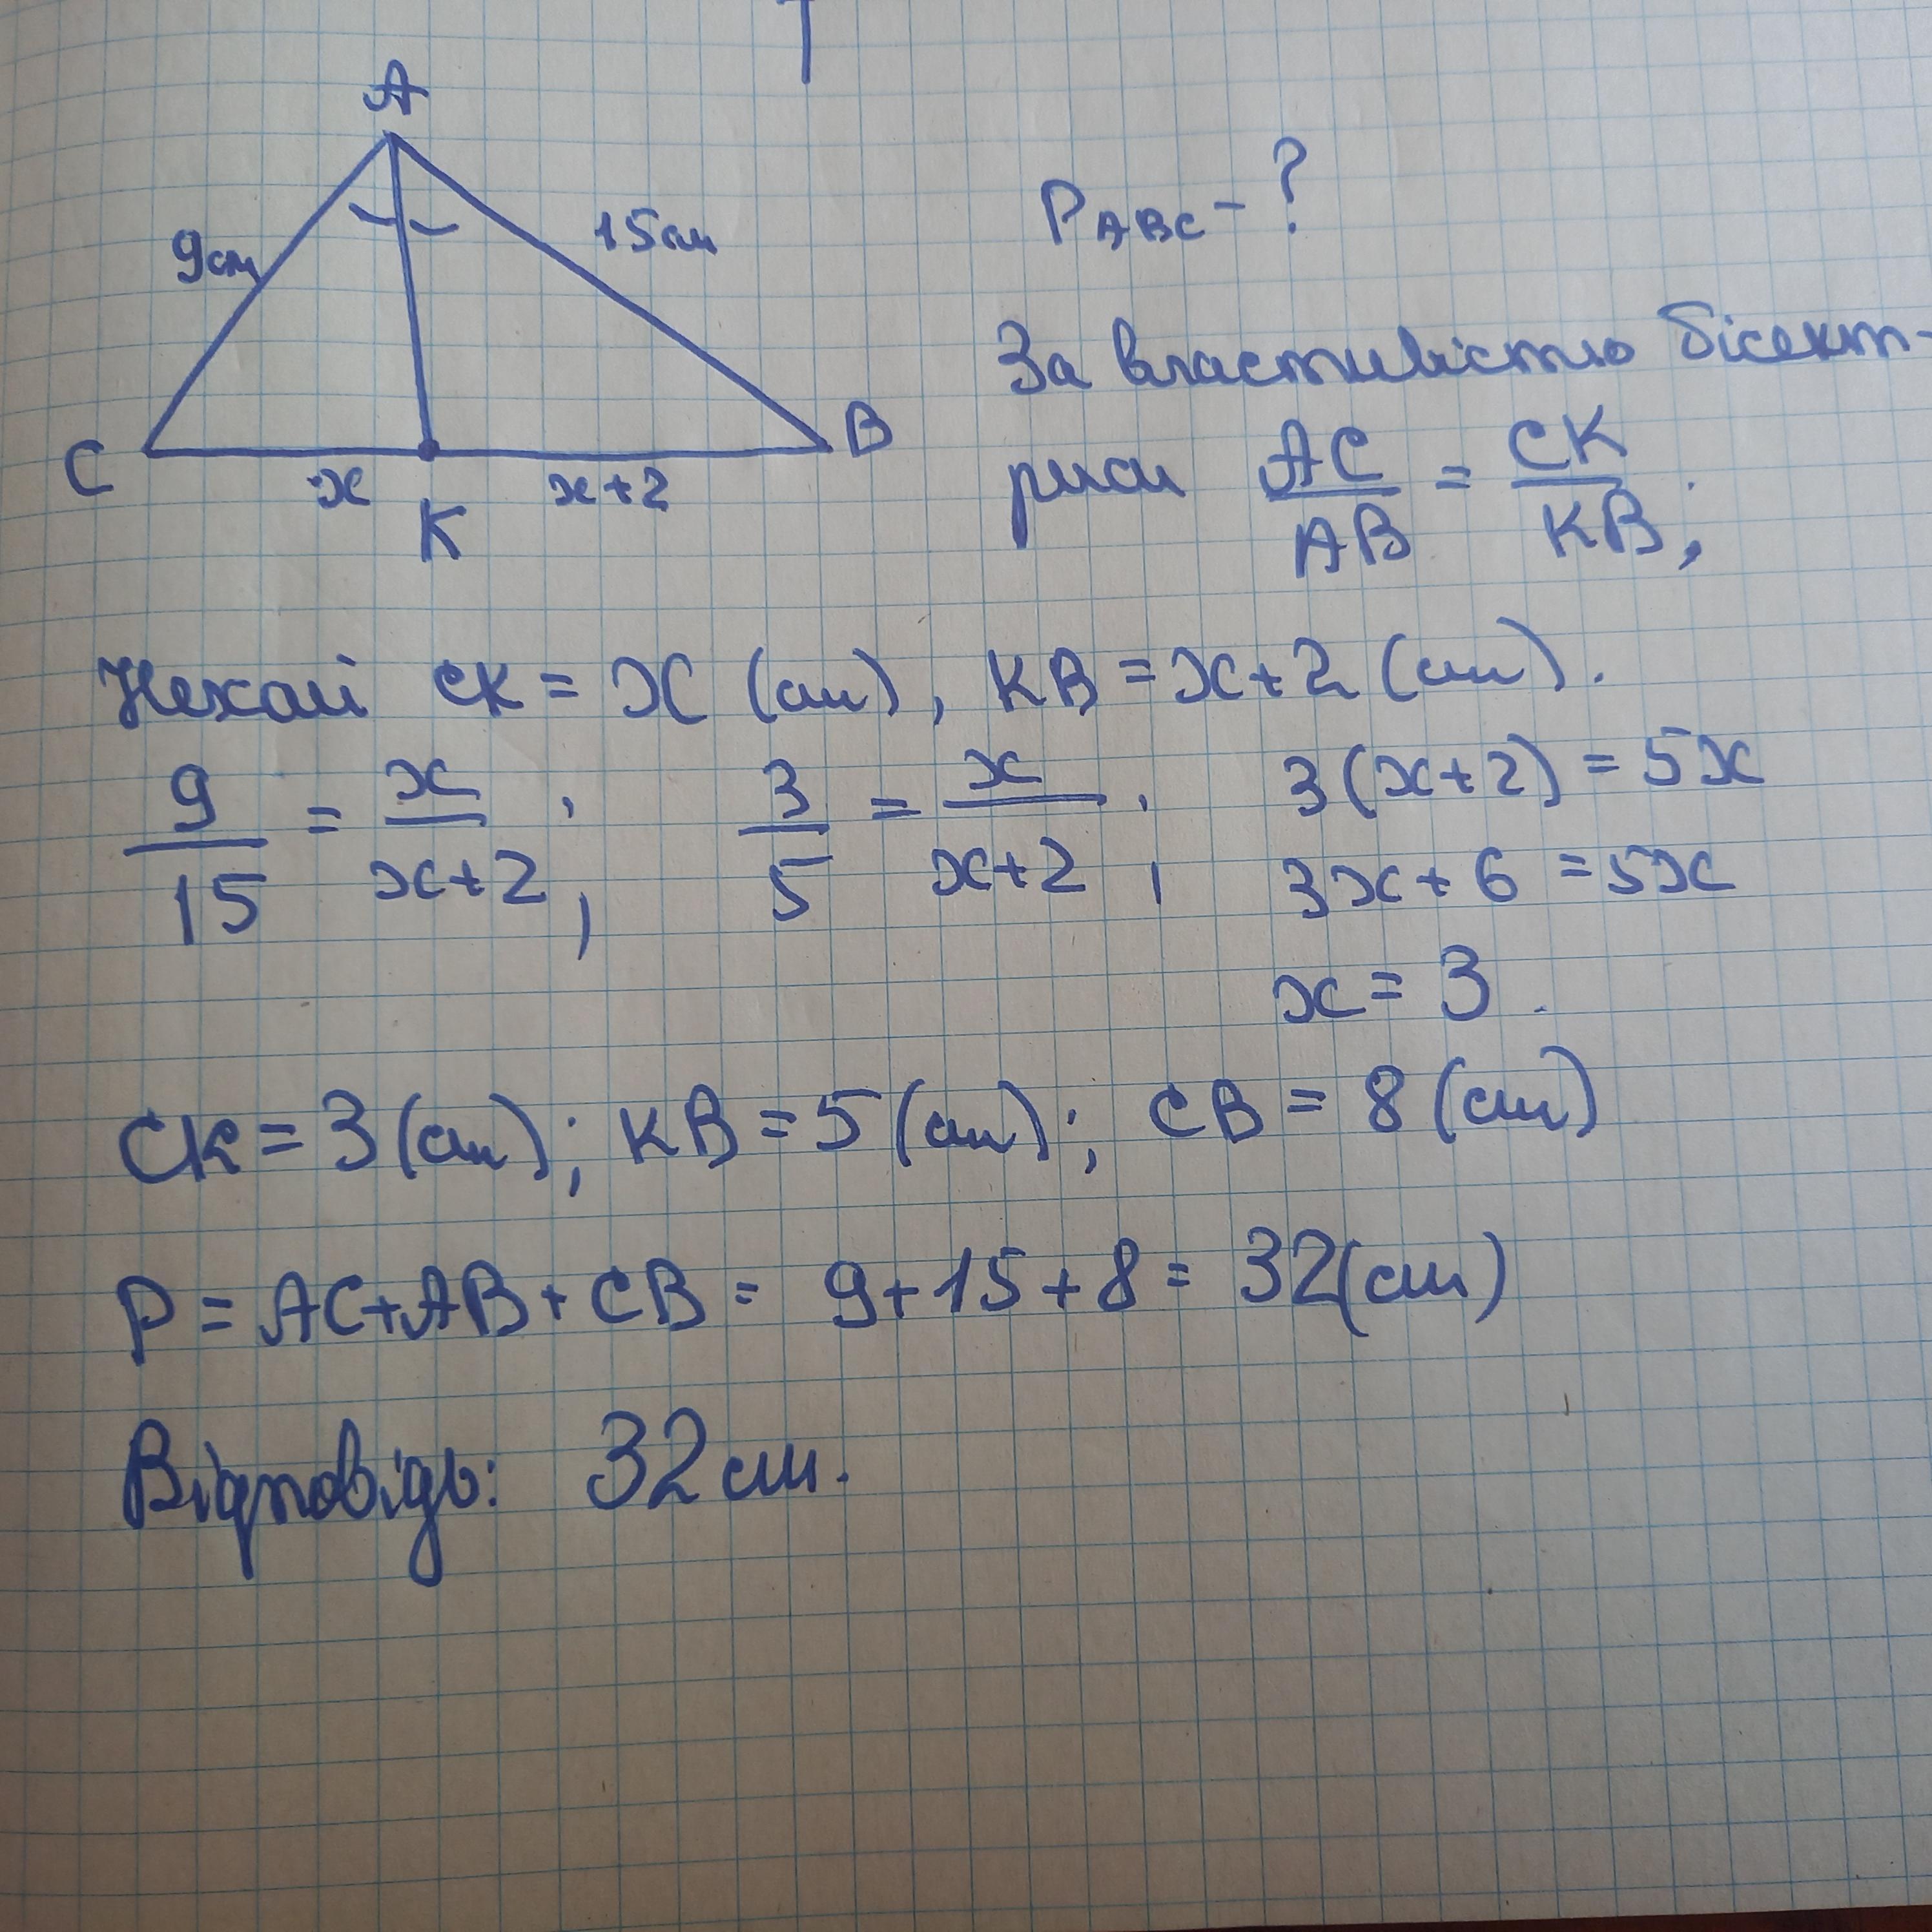 A
9см
15см
C
B
x
x+2
K
P ABC - ?
За властивістю бісект-
риси AC/AB = CK/KB;
Нехай CK = x (см), KB = x+2 (см).
9/15 = x/x+2; 3/5 = x/x+2; 3(x+2) = 5x
3x + 6 = 5x
x = 3.
CK = 3 (см); KB = 5 (см); CB = 8 (см)
P = AC+AB+CB = 9+15+8 = 32(см)
Відповідь: 32 см.